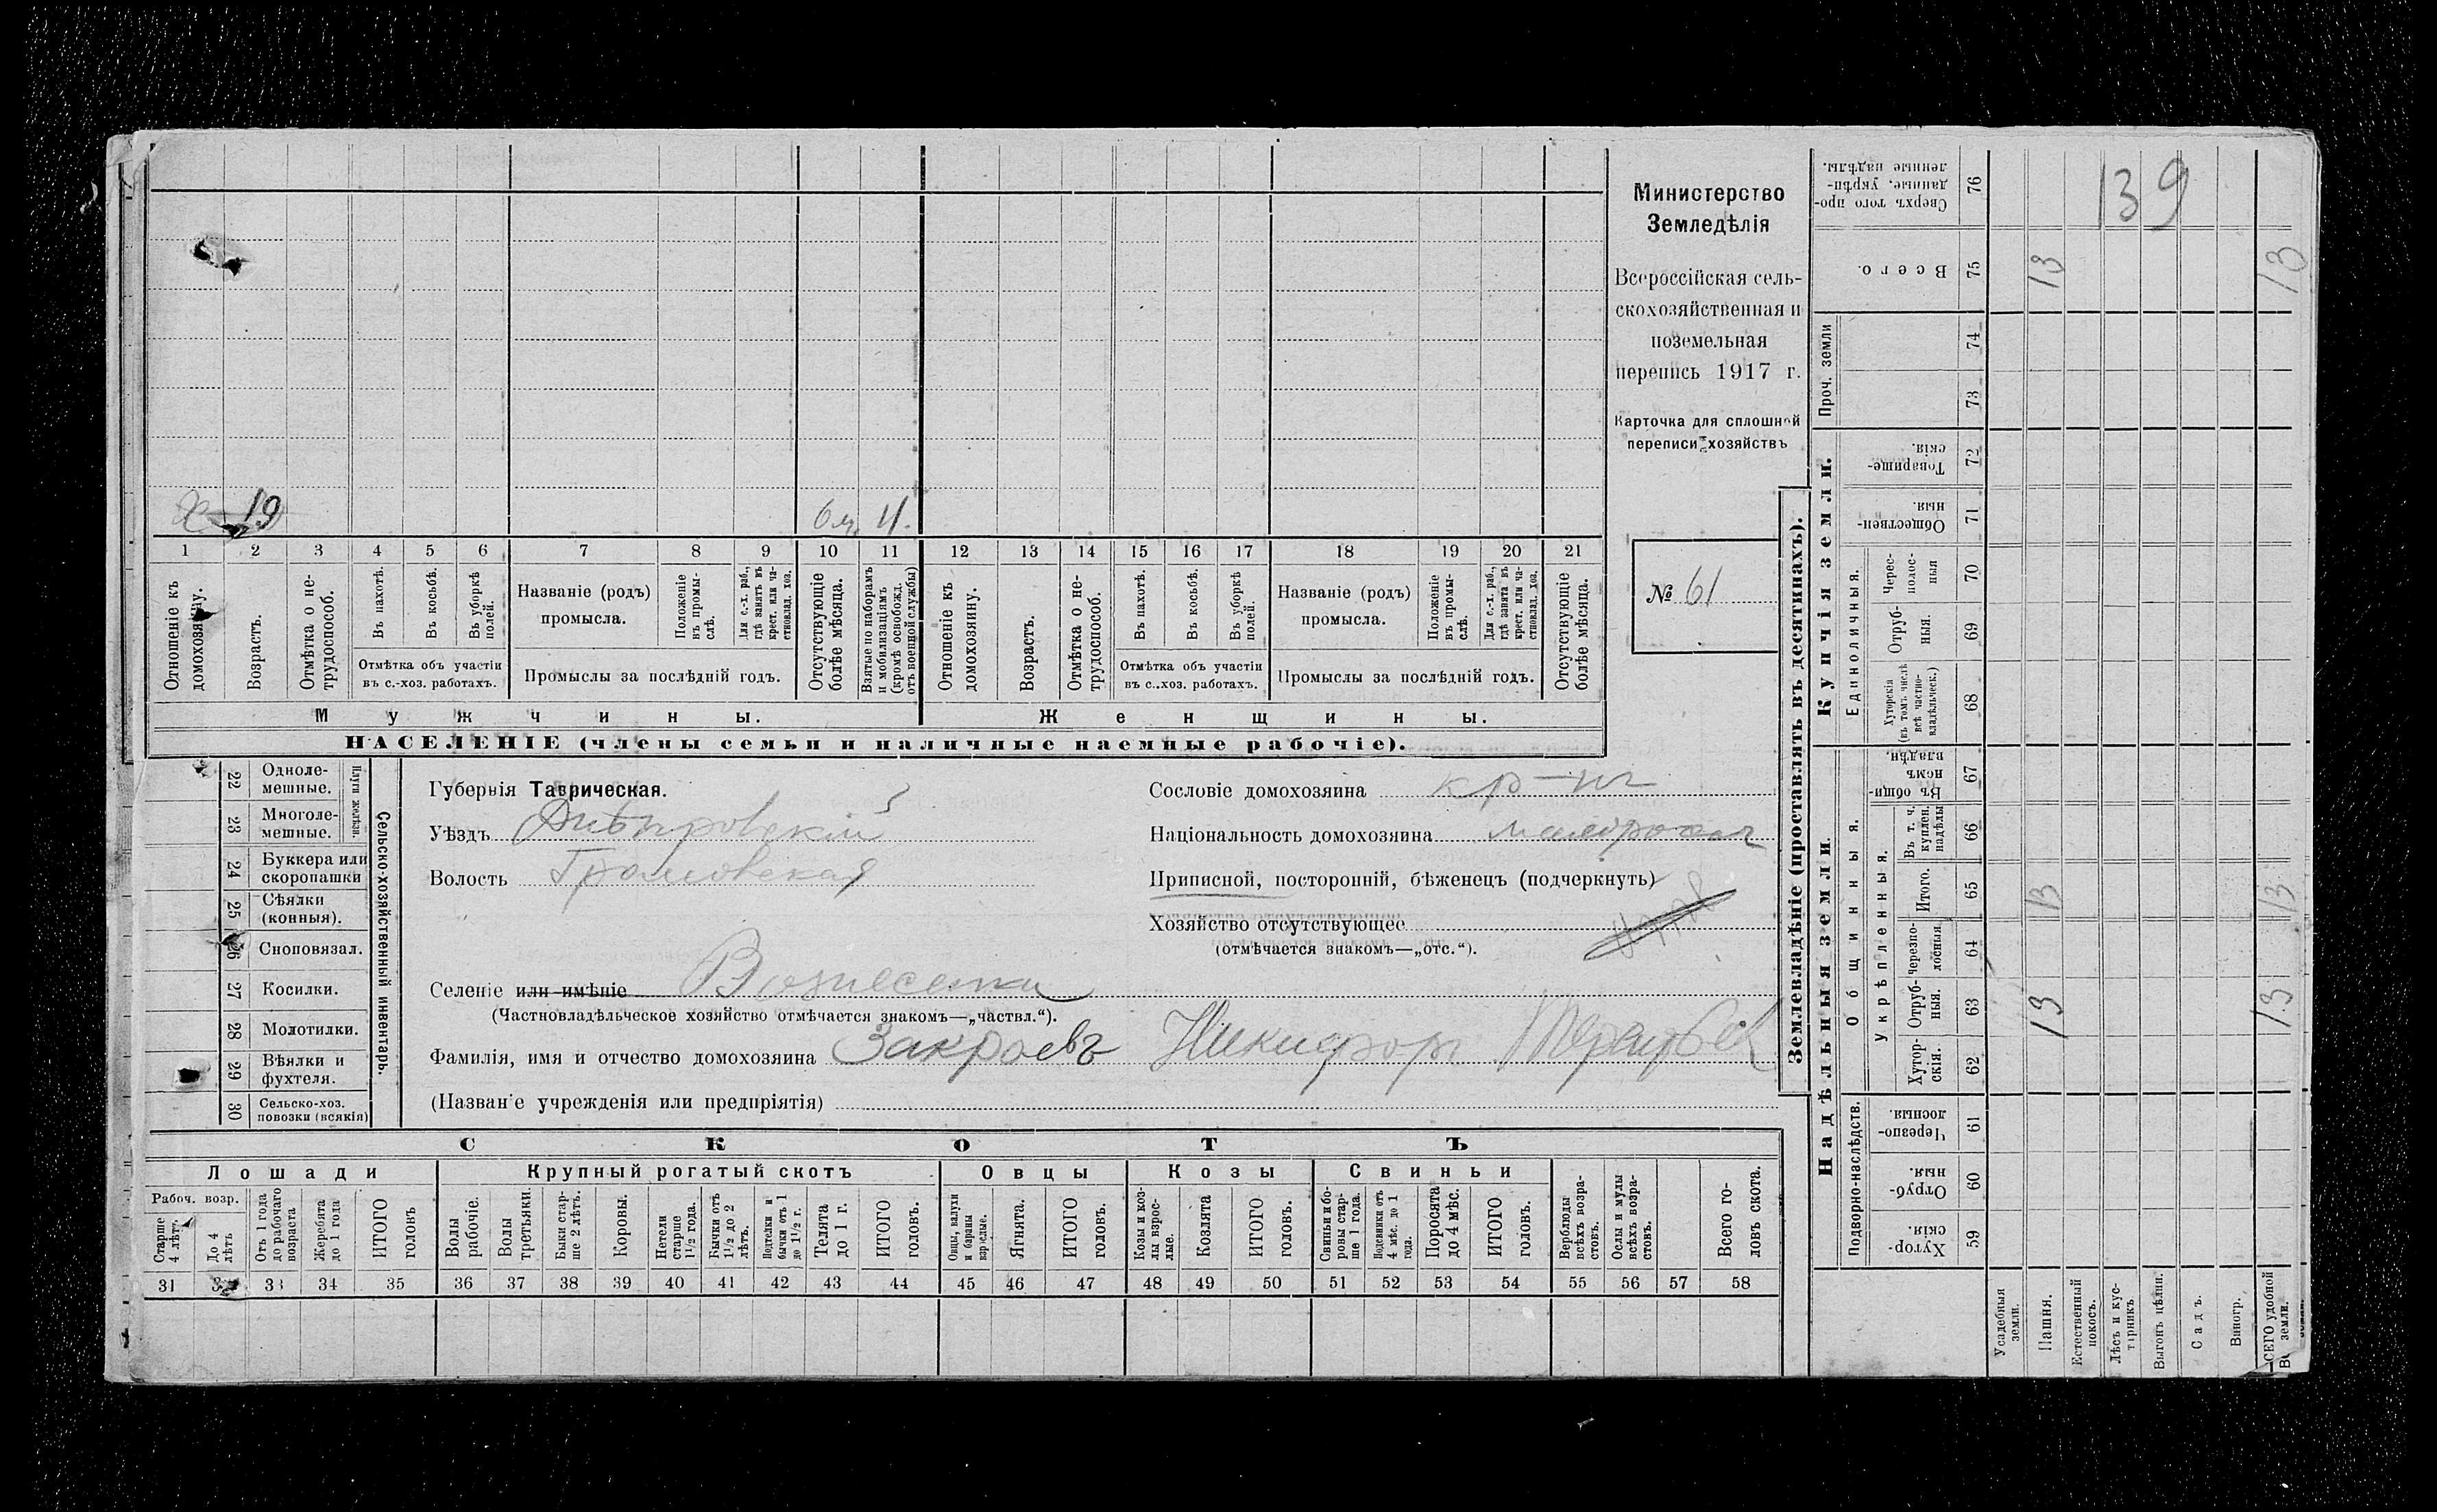 Х 19 6 м. М.
1 2 3 4 5 6 7 8 9 10 11 12 13 14 15 16 17 18 19 20 21
Отношеніе къ домохозяину.
Возрастъ.
Отмѣтка о не-трудоспособ.
Въ пахотѣ.
Въ косьбѣ.
Въ уборкѣ полей.
Отмѣтка объ участіи
въ с.-хоз. работахъ.
Названіе (родъ)
промысла.
Положеніе въ промы-слѣ.
Для с.-х. раб., гдѣ занятъ въ крест. или ча-стновлад. хоз.
Промыслы за послѣдній годъ.
Отсутствующіе болѣе мѣсяца.
Взятые по наборамъ и мобилизаціямъ (кромѣ освобожд. отъ военной службы)
Отношеніе къ домохозяину.
Возрастъ.
Отмѣтка о не-трудоспособ.
Въ пахотѣ.
Въ косьбѣ.
Въ уборкѣ полей.
Отмѣтка объ участіи
въ с.-хоз. работахъ.
Названіе (родъ)
промысла.
Положеніе въ промы-слѣ.
Для с.-х. раб., гдѣ занята въ крест. или ча-стновлад. хоз.
Промыслы за послѣдній годъ.
Отсутствующіе болѣе мѣсяца.
Мужчины. Женщины.
НАСЕЛЕНІЕ (члены семьи и наличные наемные рабочіе).
Министерство
Земледѣлія
Всероссійская сель-
скохозяйственная и
поземельная
перепись 1917 г.
Карточка для сплошной
переписи хозяйствъ
№ 61
22 Одноле-мешные.
23 Многоле-мешные.
Плуги желѣзн.
24 Буккера или скоропашки
25 Сѣялки (конныя).
26 Сноповязал.
27 Косилки.
28 Молотилки.
29 Вѣялки и фухтеля.
30 Сельско-хоз. повозки (всякія)
Сельско-хозяйственный инвентарь.
Губернія Таврическая.
Уѣздъ Днѣпровскій
Волость Громовская
Селеніе или имѣніе Вознесенка
(Частновладѣльческое хозяйство отмѣчается знакомъ—„частвл.“).
Фамилія, имя и отчество домохозяина Закроевъ Никифоръ
(Названіе учрежденія или предпріятія)
Сословіе домохозяина кр-нъ
Національность домохозяина малороссъ
Приписной, посторонній, бѣженецъ (подчеркнуть)
Хозяйство отсутствующее
(отмѣчается знакомъ—„отс.“).
СКОТЪ
Лошади Крупный рогатый скотъ Овцы Козы Свиньи
Рабоч. возр.
Старше 4 лѣтъ
До 4 лѣтъ
Отъ 1 года до рабочаго возраста
Жеребята до 1 года
ИТОГО головъ
Волы рабочіе.
Волы третьяки.
Быки стар-ше 2 лѣтъ.
Коровы.
Нетели старше 1½ года.
Бычки отъ 1½ до 2 лѣтъ.
Подтелки и бычки отъ 1 до 1½ г.
Телята до 1 г.
ИТОГО головъ.
Овцы, валухи и бараны взрослые.
Ягнята.
ИТОГО головъ.
Козы и коз-лы взрос-лые.
Козлята
ИТОГО головъ.
Свиньи и бо-ровы стар-ше 1 года.
Подсвинки отъ 4 мѣс. до 1 года.
Поросята до 4 мѣс.
ИТОГО головъ.
Верблюды всѣхъ возра-стовъ.
Ослы и мулы всѣхъ возра-стовъ.
Всего го-ловъ скота.
31 32 33 34 35 36 37 38 39 40 41 42 43 44 45 46 47 48 49 50 51 52 53 54 55 56 57 58
Землевладѣніе (проставлять въ десятинахъ).
Надѣльныя земли. Купчія земли.
Проч. земли
Подворно-наслѣдств.
Общинныя.
Укрѣпленныя.
Единоличныя.
Сверхъ того про-данные, укрѣп-ленные надѣлы. 76
139
Всего. 75 13 13
74
73
Товарище-скія. 72
Обществен-ныя. 71
Черес-полос-ныя 70
Отруб-ныя. 69
Хуторскія (въ томъ числѣ всѣ частно-владѣльческ.) 68
Въ общи-номъ владѣн. 67
Въ т. ч. куплен. надѣлы 66
Итого. 65 13 13
Черезпо-лосныя. 64
Отруб-ныя. 63 13 13
Хутор-скія. 62
Черезпо-лосныя. 61
Отруб-ныя. 60
Хутор-скія. 59
Усадебныя земли.
Пашня.
Естественный покосъ.
Лѣсъ и кус-тарникъ
Выгонъ цѣлин.
Садъ.
Виногр.
ВСЕГО удобной земли.